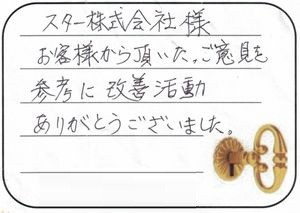 スター株式会社様
お客様から頂いた。ご意見を
参考に 改善活動
ありがとうございました。